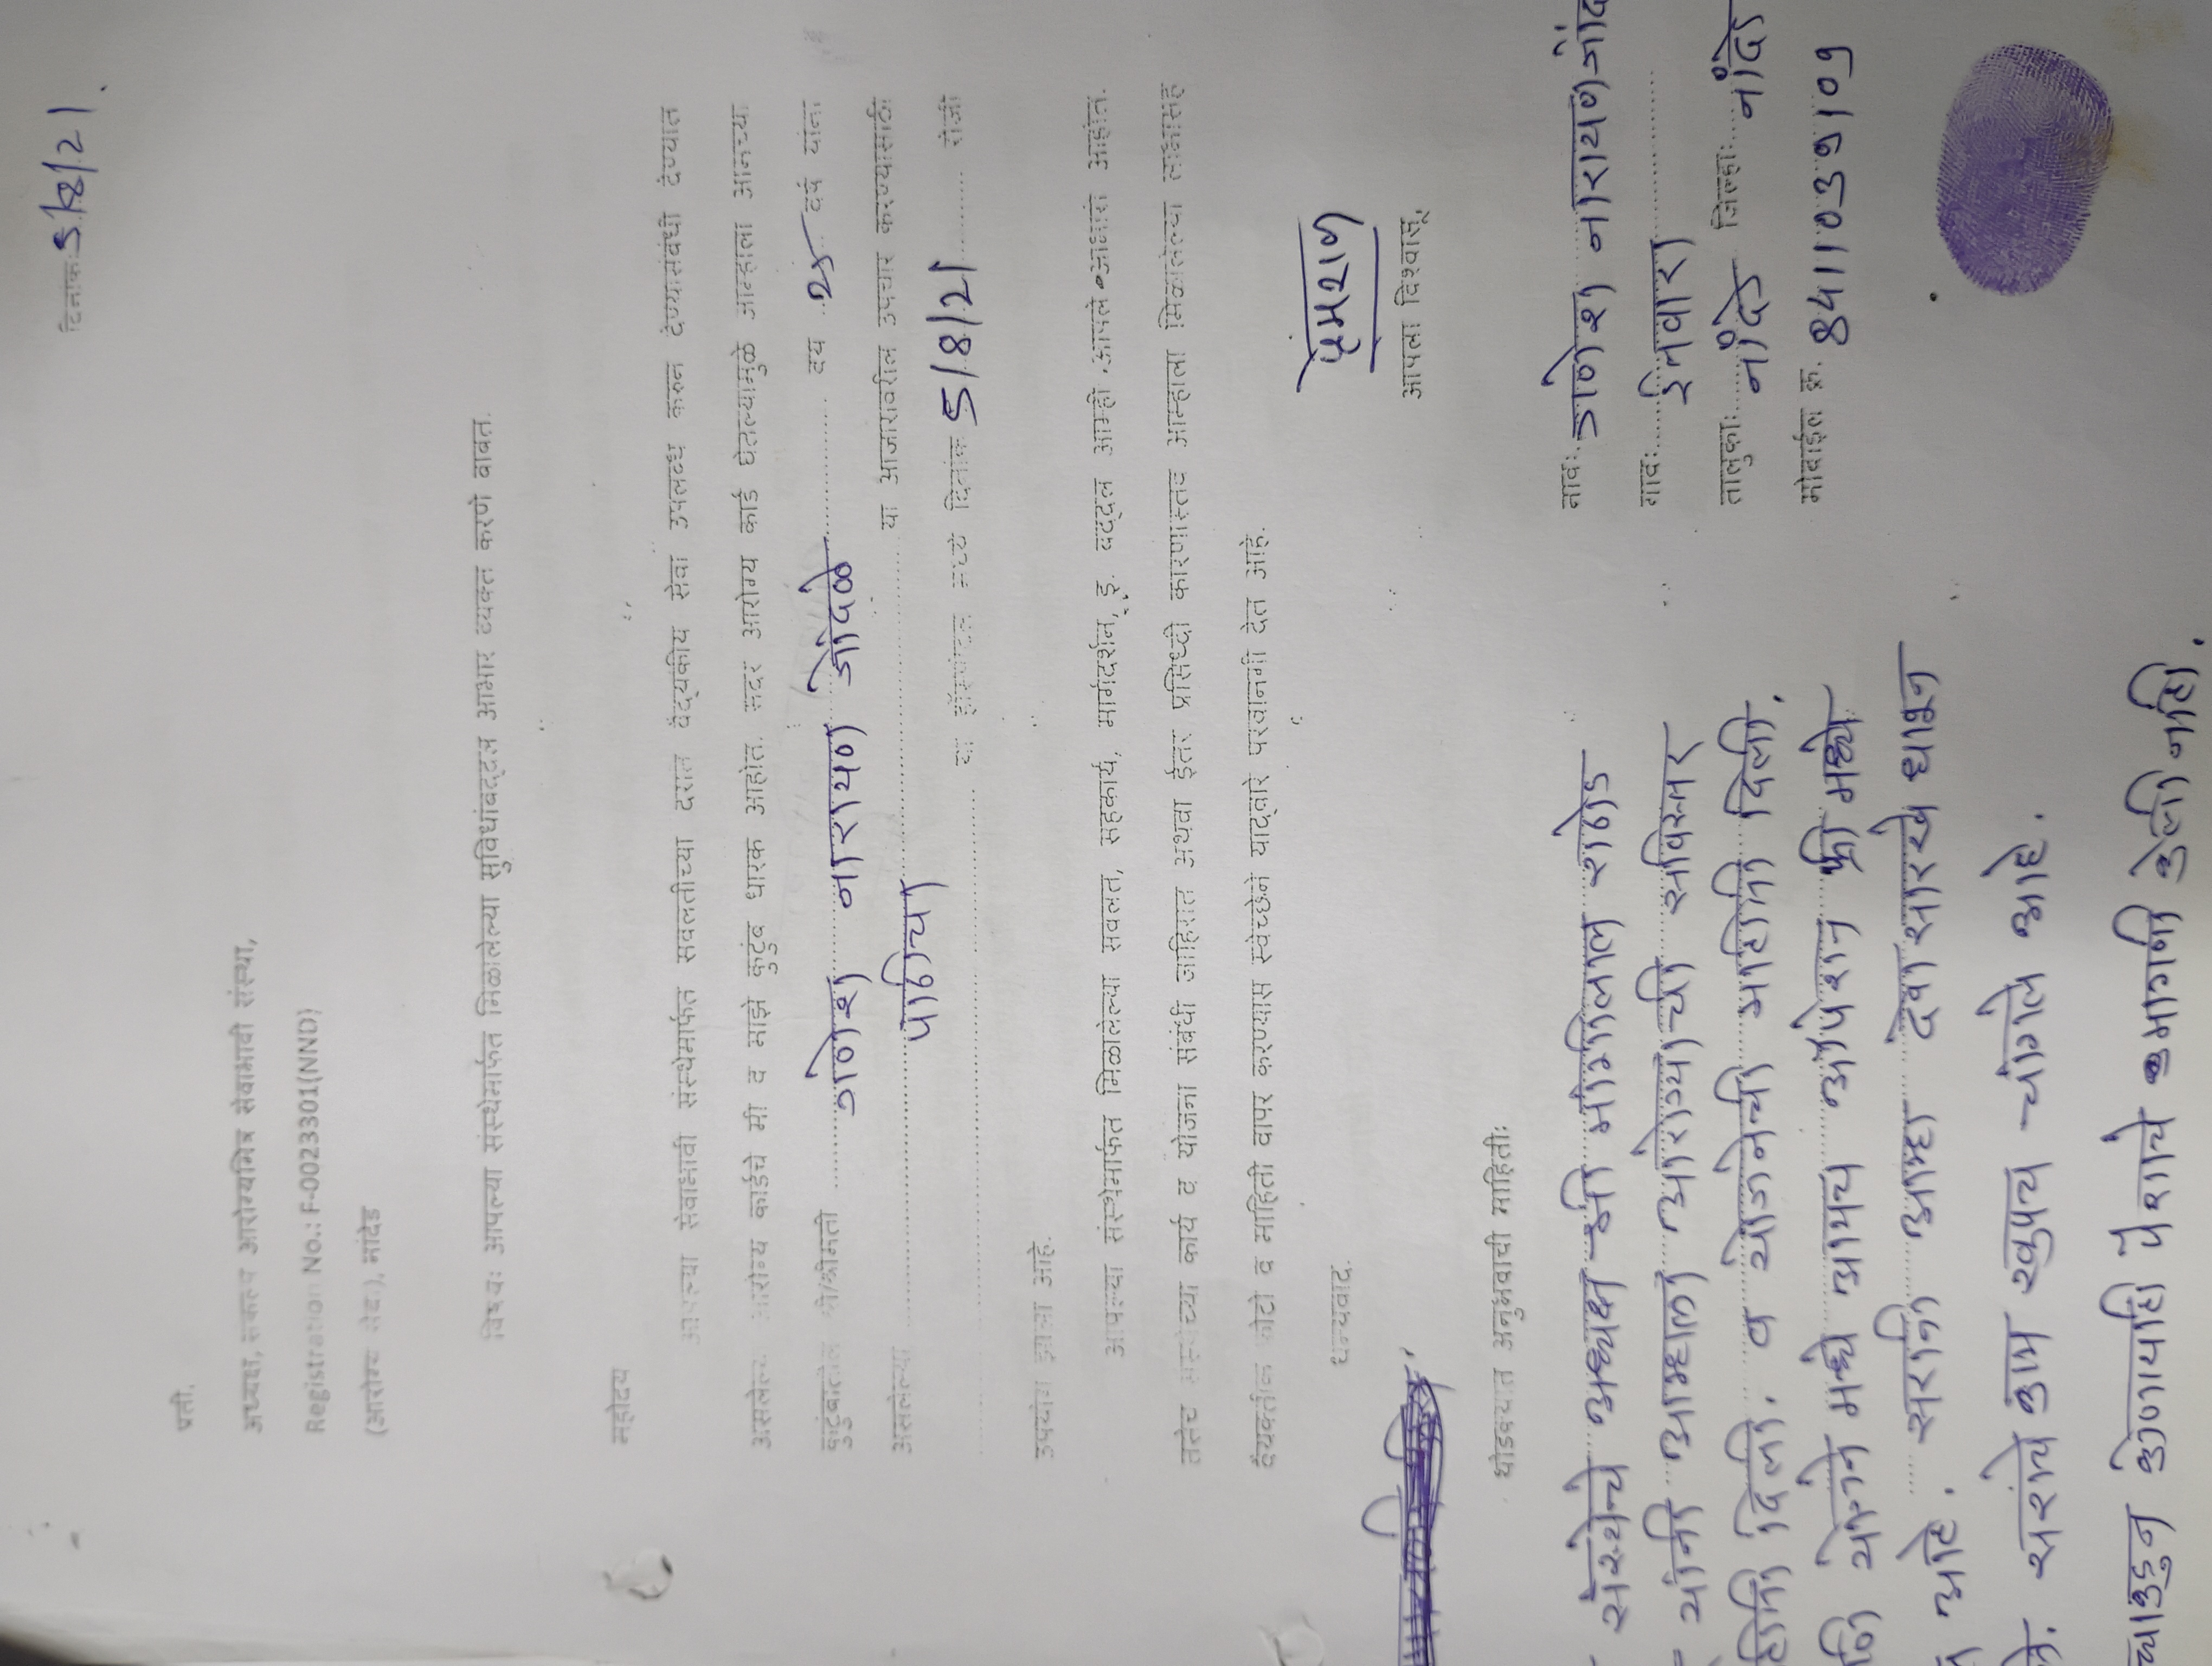 दिनांक: 5/8/21.
प्रती,
अध्यक्ष, संकल्प आरोग्यमित्र सेवाभावी संस्था,
Registration No.: F-0023301(NND)
(आरोग्य सेवा), नांदेड
विषय: आपल्या संस्थेमार्फत मिळालेल्या सुविधांबद्दल आभार व्यक्त करणे बाबत.
महोदय
आपल्या सेवाभावी संस्थेमार्फत सवलतीच्या दरात वैद्यकीय सेवा उपलब्ध करून देण्यासंबंधी देण्यात
असलेल्या आरोग्य कार्डचे मी व माझे कुटुंब धारक आहोत. सदर आरोग्य कार्ड घेतल्यामुळे आम्हाला आमच्या
कुटुंबातील श्री/श्रीमती गणेश नारायण गोदळे वय 25 वर्ष यांना
असलेल्या पाठिच्या या आजारावरील उपचार करण्यासाठी
या हॉस्पिटल मध्ये दिनांक 5/8/21 रोजी
उपयोग झाला आहे.
आपल्या संस्थेमार्फत मिळालेल्या सवलत, सहकार्य, मार्गदर्शन, इ. बद्दल आम्ही आपले आभारी आहोत.
तसेच संस्थेच्या कार्य व योजना संबंधी जाहिरात अथवा ईतर प्रसिध्दी कारणास्तव आम्हाला मिळालेल्या लाभासह
वैयक्तीक फोटो व माहिती वापर करण्यास स्वेच्छेने याद्वारे परवानगी देत आहे.
धन्यवाद.
आपला विश्वासू,
थोडक्यात अनुभवाची माहिती:
संस्थेचे अध्यक्ष श्री मोतीलाल राठोड
यांनी आम्हाला आरोग्याची सविस्तर
दिली. व योजनेची माहिती दिली.
योजने मध्ये आमचे ऑपरेशन फ्री मध्ये
आहे. सरांनी आम्हा देवा सारखे धाऊन
सरांचे काम खुपच चांगले आहे.
कोणत्याही पैशाचे मागणी केली नाही.
नाव: गणेश नारायण गोद
गाव:
तालुका: नांदेड जिल्हा: नांदेड
मोबाईल क्र. 8411039109